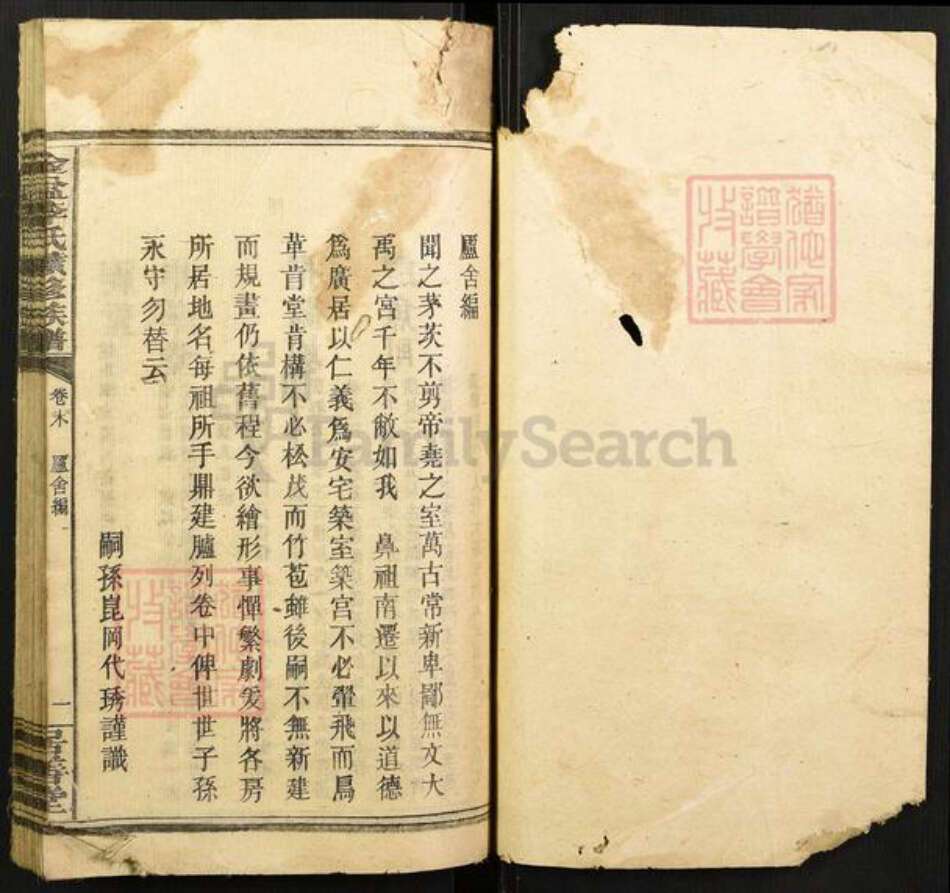 廬舍編
聞之茅茨不剪帝堯之室萬古常新卑鄙無文大
禹之宮千年不敝如我　鼻祖南遷以來以道德
爲廣居以仁義爲安宅築室築宫不必翬飛而鳥
革肯堂肯構不必松茂而竹苞雖後嗣不無新建
而規畫仍依舊程今欲繪形事憚繁劇爰將各房
所居地名每祖所手鼎建臚列卷中俾世世子孫
永守勿替云
嗣孫崑岡代琇謹識
李氏續修族譜
卷末　廬舍編
一
譜學會
收藏
FamilySearch